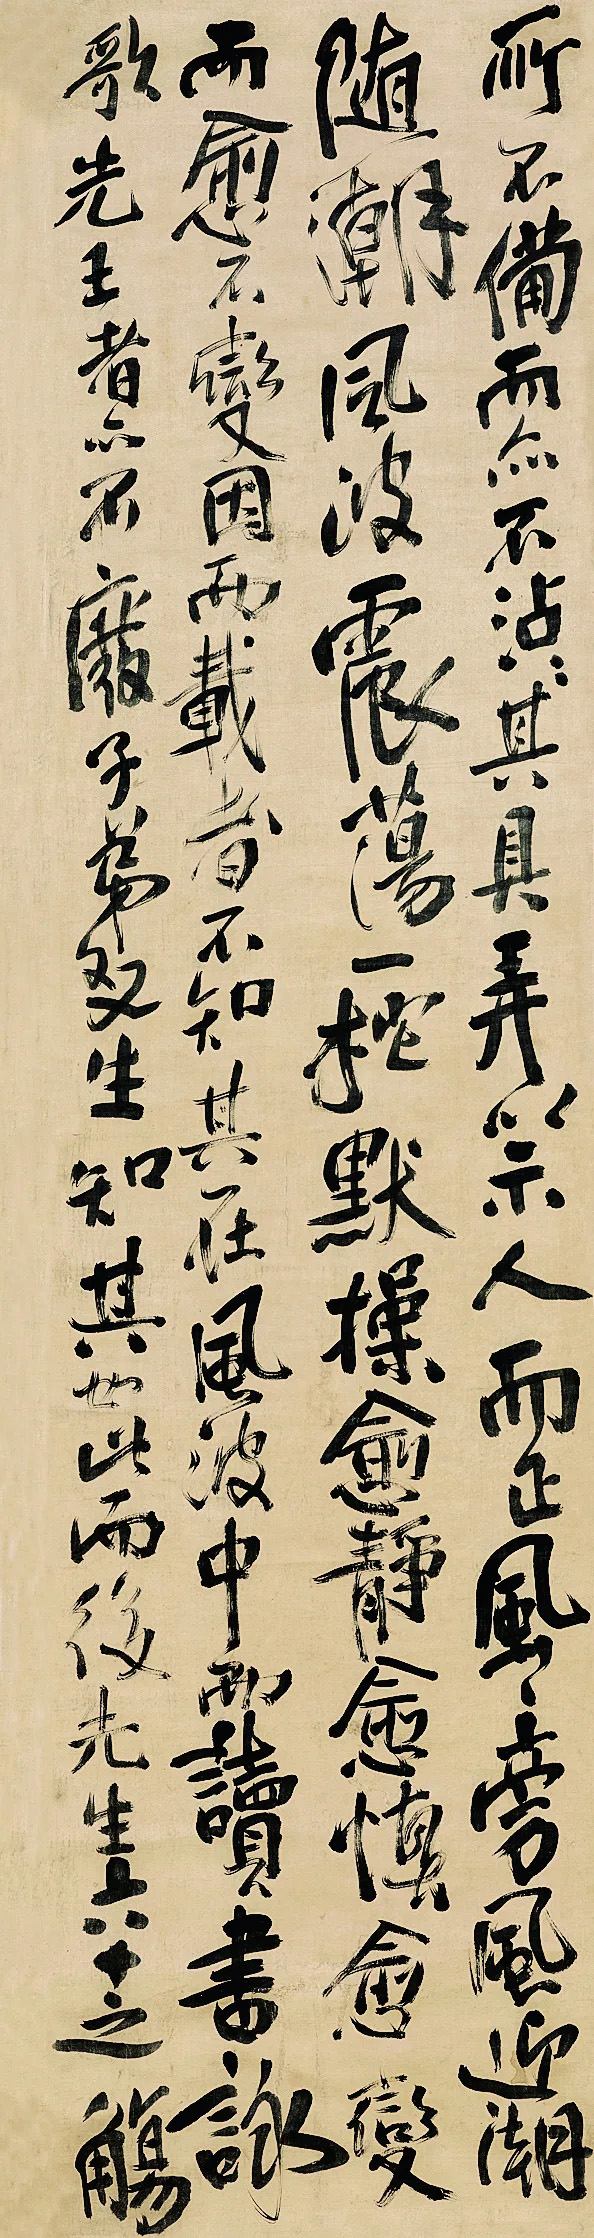 所不備而亦不沾沾其具弄以示人而正風旁風迎潮
随潮風波震蕩一柁默操愈静愈慎愈變
而愈不變因而載者不知其在風波中而讀書詠
歌先王者亦不廢子弟父生知其如此而後先生六十之觴